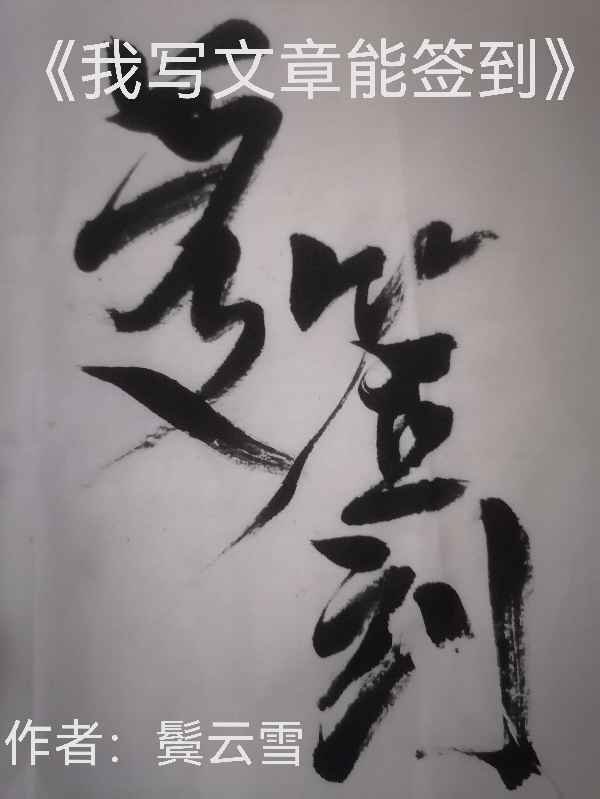 《我写文章能签到》
写文
签到
作者：鬓云雪